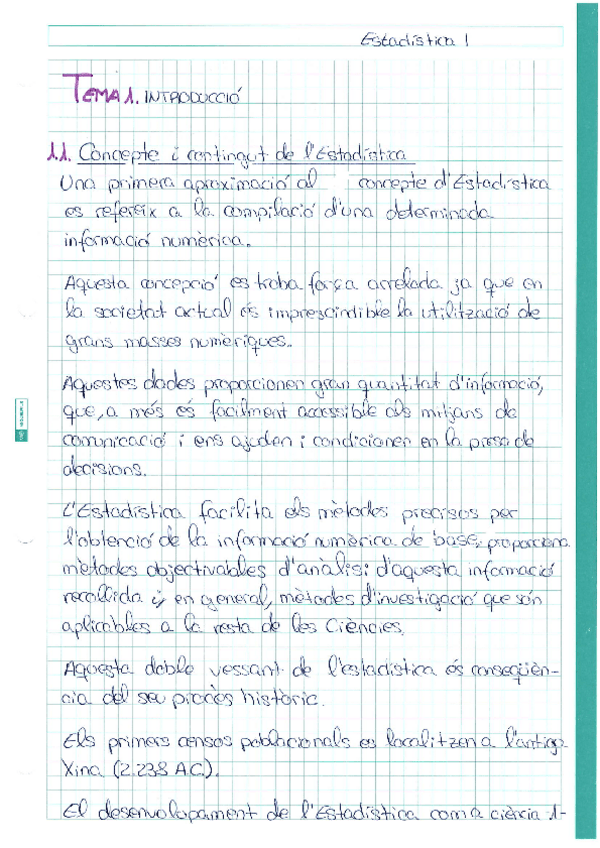 Estadística 1
TEMA 1. INTRODUCCIÓ
1.1. Concepte i contingut de l'Estadística
Una primera aproximació al concepte d'Estadística
es refereix a la compilació d'una determinada
informació numèrica.
Aquesta concepció es troba força arrelada ja que en
la societat actual és imprescindible la utilització de
grans masses numèriques.
Aquestes dades proporcionen gran quantitat d'informació,
que, a més és facilment accessible als mitjans de
comunicació i ens ajuden i condicionen en la presa de
decisions.
L'Estadística facilita els mètodes precisos per
l'obtenció de la informació numèrica de base; proporciona
mètodes objectivables d'anàlisi d'aquesta informació
recollida i, en general, mètodes d'investigació que són
aplicables a la resta de les Ciències.
Aquesta doble vessant de l'estadística és conseqüèn-
cia del seu procès històric.
Els primers censos poblacionals es localitzen a l'antiga
Xina (2.238 A.C.).
El desenvolupament de l'Estadística com a ciència i-